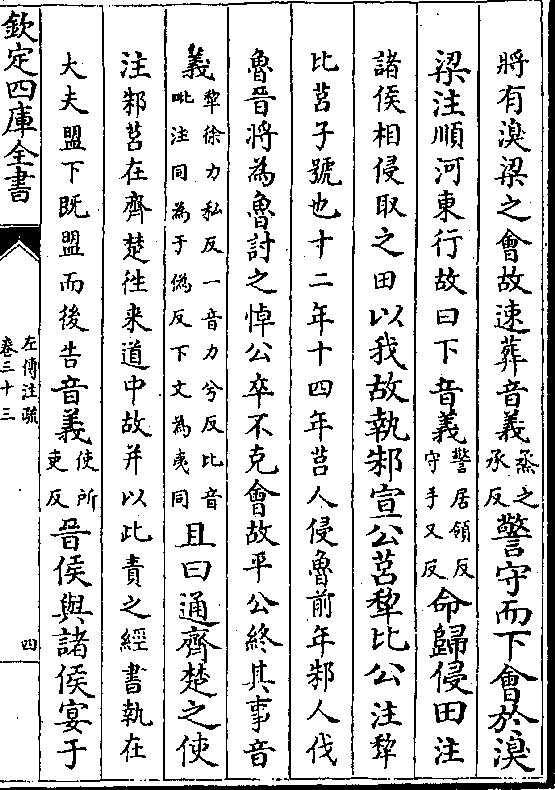 將有溴梁之會故速葬音義烝之承反警守而下會於溴
梁注順河東行故曰下音義警居領反守手又反命歸侵田注
諸侯相侵取之田以我故執邾宣公莒犂比公注犂
比莒子號也十二年十四年莒人侵魯前年邾人伐
魯晉將為魯討之悼公卒不克會故平公終其事音
義犂徐力私反一音力兮反比音毗注同為于偽反下文為夷同且曰通齊楚之使
注邾莒在齊楚徃來道中故并以此責之經書執在
大夫盟下既盟而後告音義使所吏反晉侯與諸侯宴于
欽定四庫全書
左傳注疏
卷三十三
四